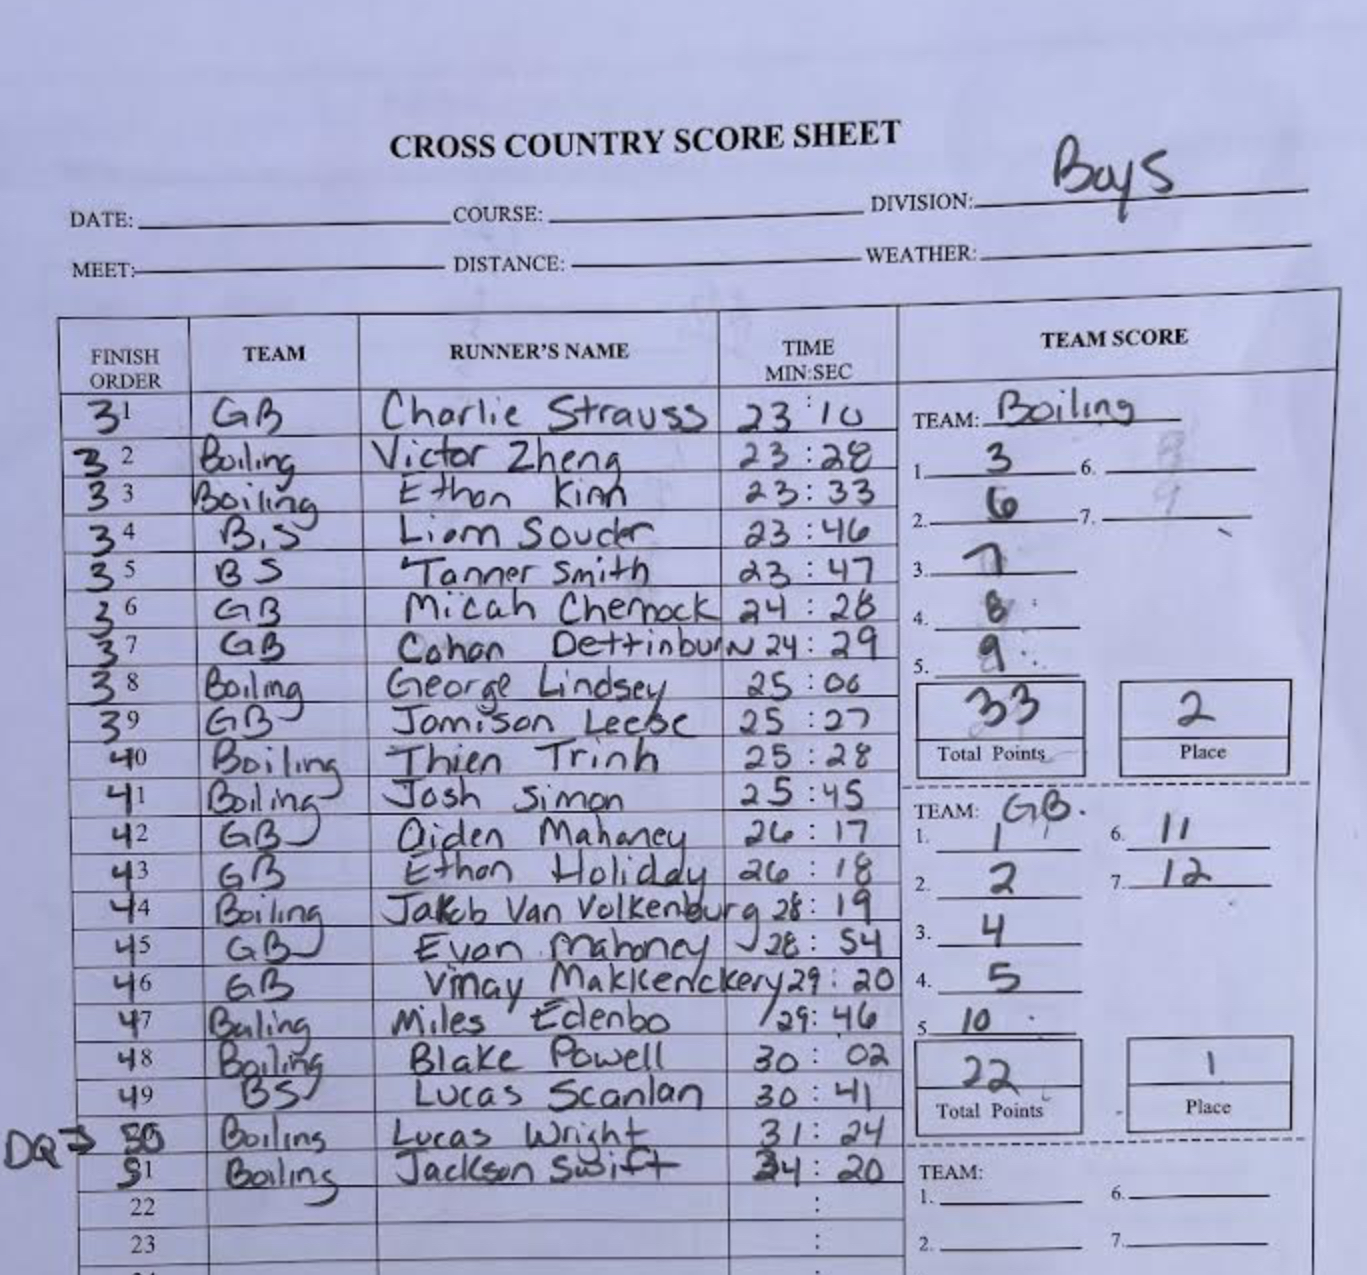 CROSS COUNTRY SCORE SHEET
DATE: COURSE: DIVISION: Boys
MEET: DISTANCE: WEATHER:
FINISH ORDER TEAM RUNNER'S NAME TIME MIN:SEC TEAM SCORE
31 GB Charlie Strauss 23:10
32 Boiling Victor Zheng 23:28
33 Boiling Ethan Kinn 23:33
34 B.S Liam Souder 23:46
35 BS Tanner Smith 23:47
36 GB Micah Chernock 24:28
37 GB Cohan Dettinburn 24:29
38 Boiling George Lindsey 25:06
39 GB Jamison Leese 25:27
40 Boiling Thien Trinh 25:28
41 Boiling Josh Simon 25:45
42 GB Aiden Mahaney 26:17
43 GB Ethan Holiday 26:18
44 Boiling Jakob Van Volkenburg 28:19
45 GB Evan Mahoney 28:54
46 GB Vinay Makkenckery 29:20
47 Boling Miles Edenbo 29:46
48 Boiling Blake Powell 30:02
49 BS Lucas Scanlan 30:41
DQ → 50 Boiling Lucas Wright 31:24
51 Boiling Jackson Swift 34:20
22 :
23 :
TEAM: Boiling
1. 3 6.
2. 6 7.
3. 7
4. 8
5. 9
33 2
Total Points Place
TEAM: GB.
1. 1 6. 11
2. 2 7. 12
3. 4
4. 5
5. 10
22 1
Total Points Place
TEAM:
1. 6.
2. 7.